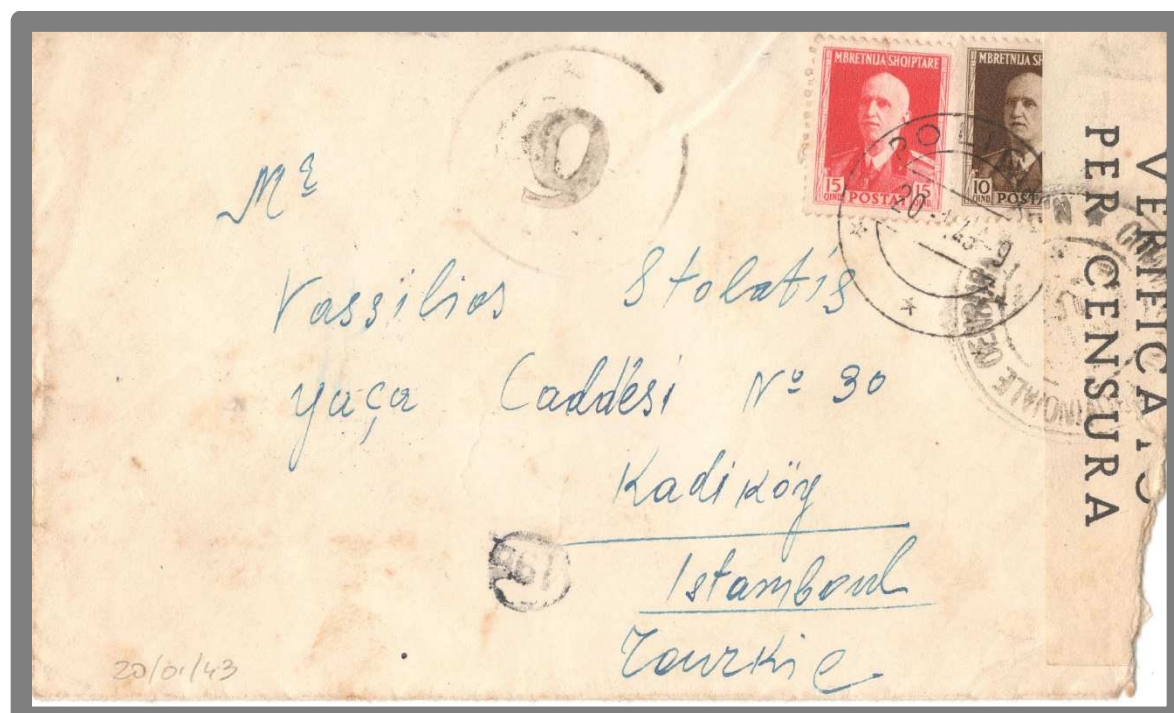 MBRETNIJA SHQIPTARE
15 QIND. POSTAT 15
MBRETNIJA SH
10 QIND. POSTA
VERIFICATO
PER CENSURA
9
Mr
Vassilios Stolatis
Yaça Caddesi Nº 30
Kadiköy
Istamboul
Tourkie
20/01/43